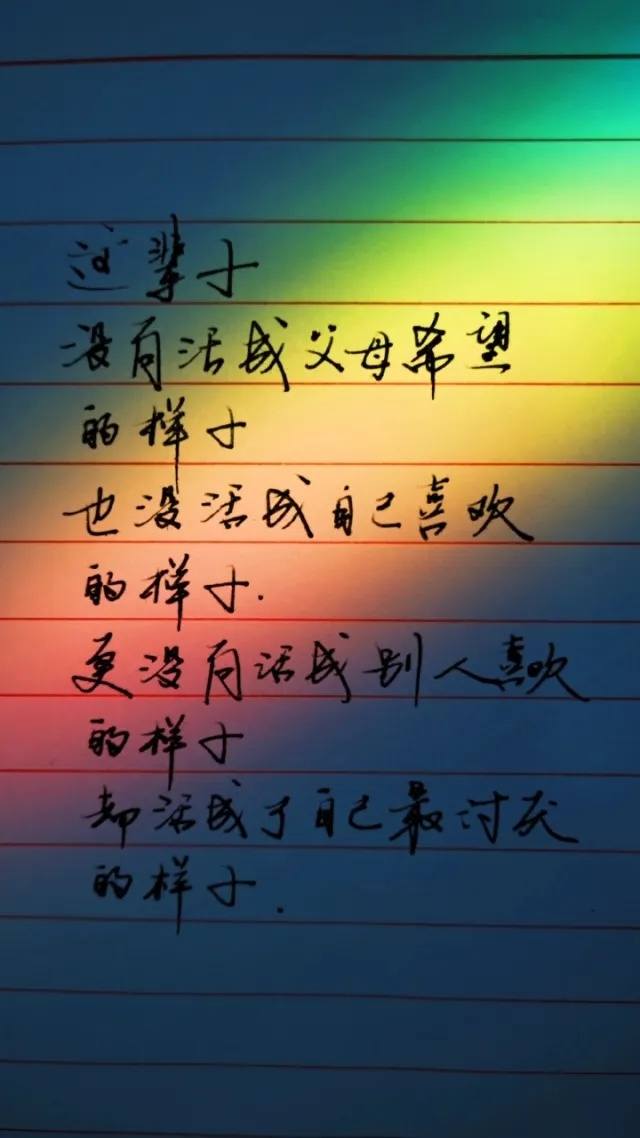 这辈子
没有活成父母希望
的样子
也没活成自己喜欢
的样子.
更没有活成别人喜欢
的样子
却活成了自己最讨厌
的样子.